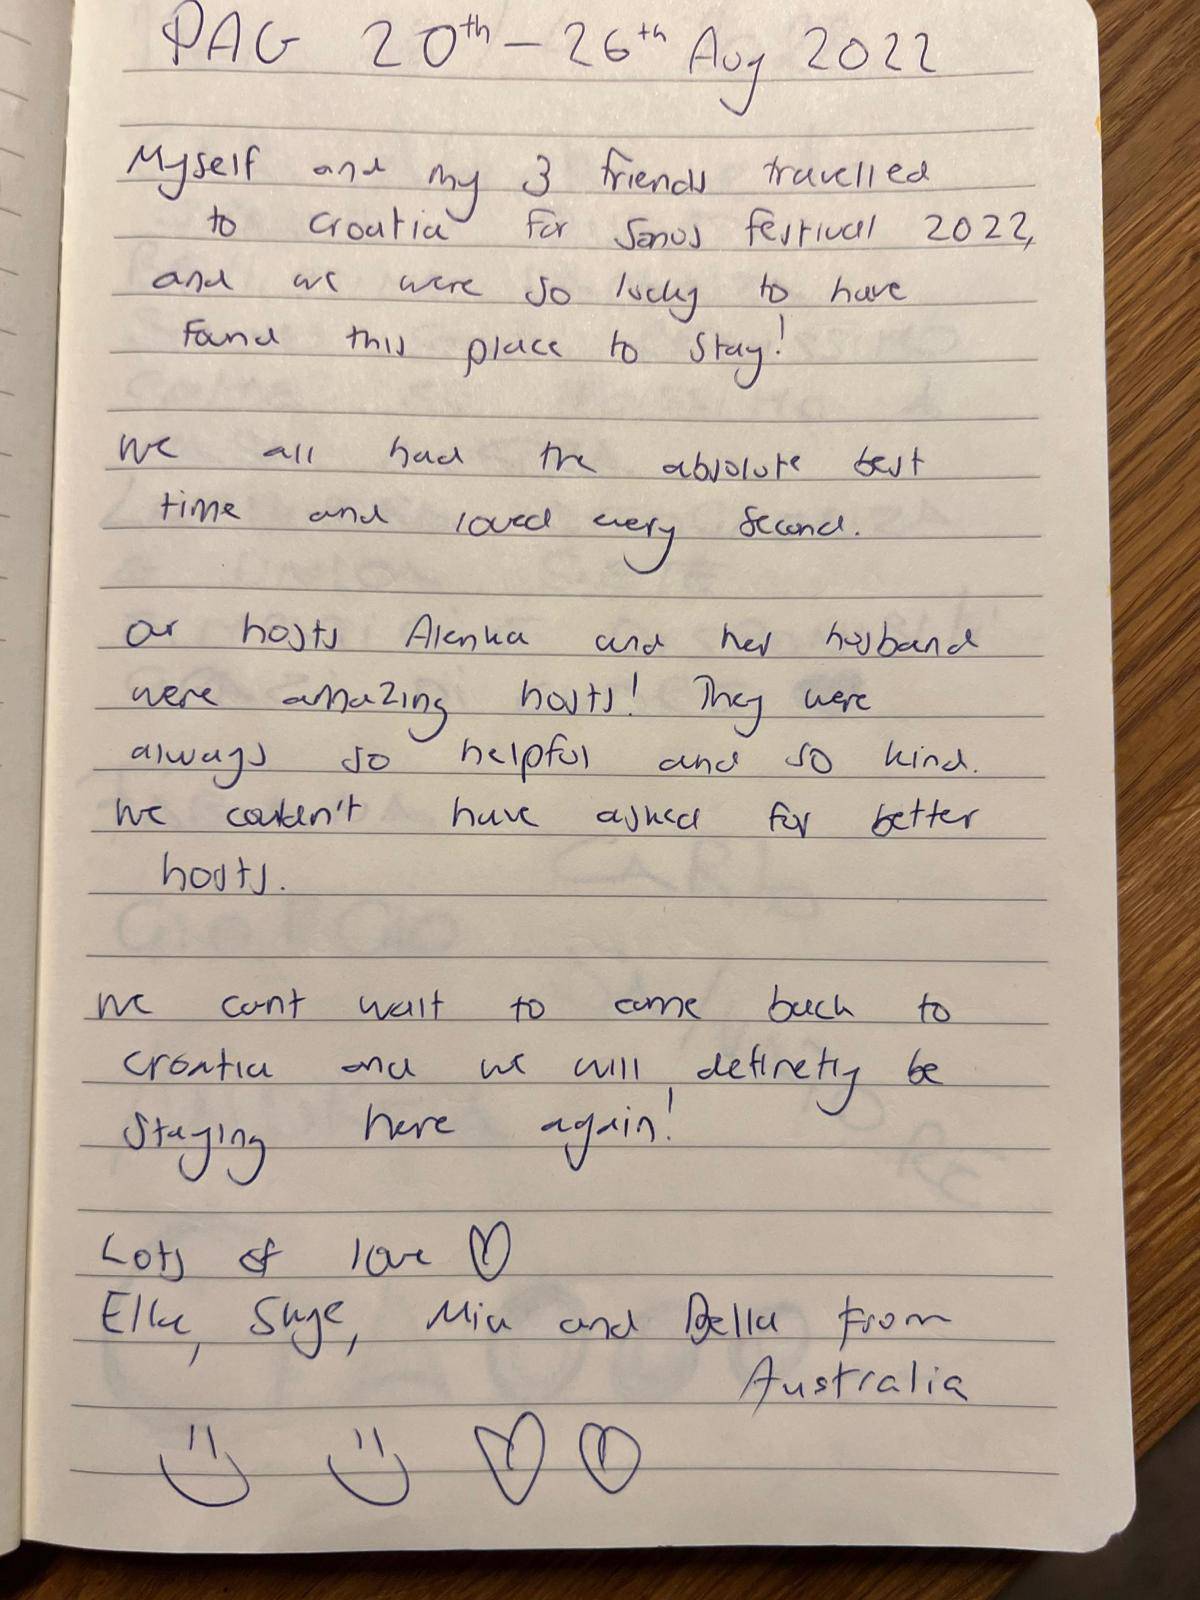 PAG 20th - 26th Aug 2022
Myself and my 3 friends travelled
to Croatia for Sonus festival 2022,
and we were so lucky to have
found this place to stay!
We all had the absolute best
time and loved every second.
Our hosts Alenka and her husband
were amazing hosts! They were
always so helpful and so kind.
We couldn't have asked for better
hosts.
We cant wait to come back to
Croatia and we will definetly be
staying here again!
Lots of love
Ella, Skye, Mia and Bella from
Australia